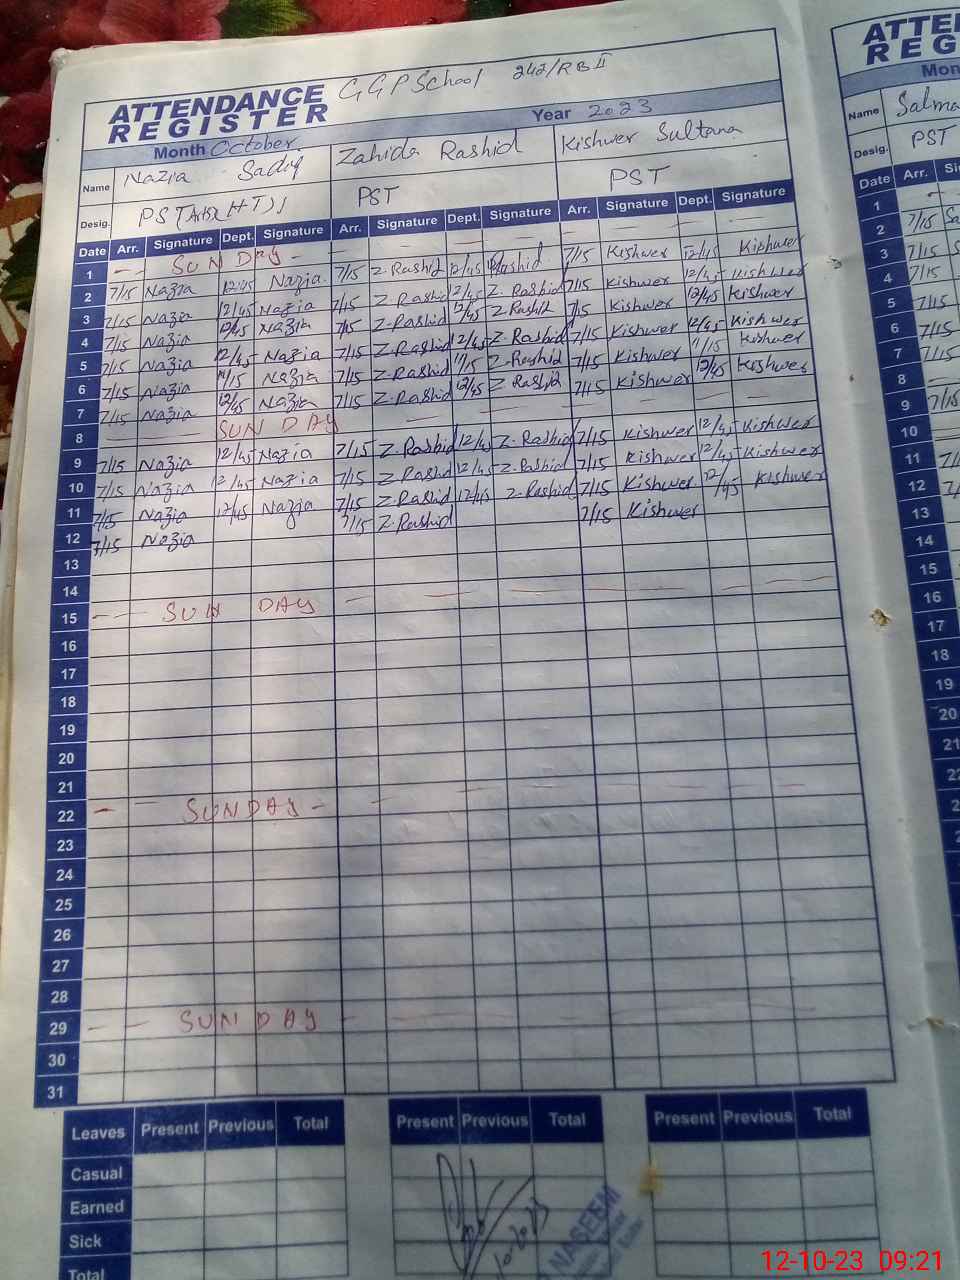 GGPSchool 242/RB II
ATTENDANCE REGISTER
Year 2023
Month October
Name Nazia Sadiq Zahida Rashid Kishwer Sultana
Desig. PST PST PST
Date Arr. Signature Dept. Signature Arr. Signature Dept. Signature Arr. Signature Dept. Signature
1 SUNDAY
2 7/15 Nazia 12/45 Nazia 7/15 Z.Rashid 12/45 Rashid 7/15 Kishwer 12/45 Kishwer
3 7/15 Nazia 12/45 Nazia 7/15 Z.Rashid 12/45 Z.Rashid 7/15 Kishwer 12/45 Kishwer
4 7/15 Nazia 12/45 Nazia 7/15 Z.Rashid 12/45 Z.Rashid 7/15 Kishwer 12/45 Kishwer
5 7/15 Nazia 12/45 Nazia 7/15 Z.Rashid 12/45 Z.Rashid 7/15 Kishwer 12/45 Kishwer
6 7/15 Nazia 11/15 Nazia 7/15 Z.Rashid 11/15 Z.Rashid 7/15 Kishwer 11/15 Kishwer
7 7/15 Nazia 12/45 Nazia 7/15 Z.Rashid 12/45 Z.Rashid 7/15 Kishwer 12/45 Kishwer
8 SUNDAY
9 7/15 Nazia 12/45 Nazia 7/15 Z.Rashid 12/45 Z.Rashid 7/15 Kishwer 12/45 Kishwer
10 7/15 Nazia 12/45 Nazia 7/15 Z.Rashid 12/45 Z.Rashid 7/15 Kishwer 12/45 Kishwer
11 7/15 Nazia 12/45 Nazia 7/15 Z.Rashid 12/45 Z.Rashid 7/15 Kishwer 12/45 Kishwer
12 7/15 Nazia 7/15 Z.Rashid 7/15 Kishwer
13
14
15 SUNDAY
16
17
18
19
20
21
22 SUNDAY
23
24
25
26
27
28
29 SUNDAY
30
31
Leaves Present Previous Total Present Previous Total Present Previous Total
Casual
Earned
Sick
Total
NASEEM
ATTE
REG
Mon
Name Salma
Desig. PST
Date Arr. Si
1
2 7/15 Sa
3 7/15
4 7/15
5 7/15
6 7/15
7 7/15
8
9 7/15
10
11
12
13
14
15
16
17
18
19
20
21
12-10-23 09:21